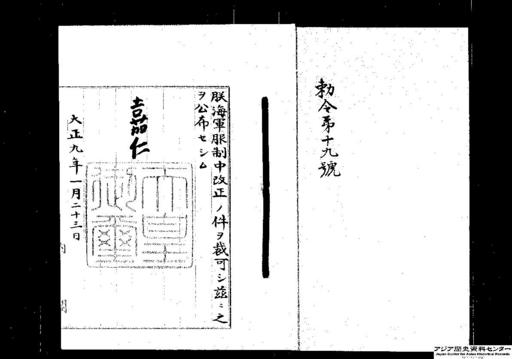 勅令第十九號
朕海軍服制中改正ノ件ヲ裁可シ茲ニ之
ヲ公布セシム
嘉仁
天皇御璽
大正九年一月二十三日
内閣
アジア歴史資料センター
Japan Center for Asian Historical Records